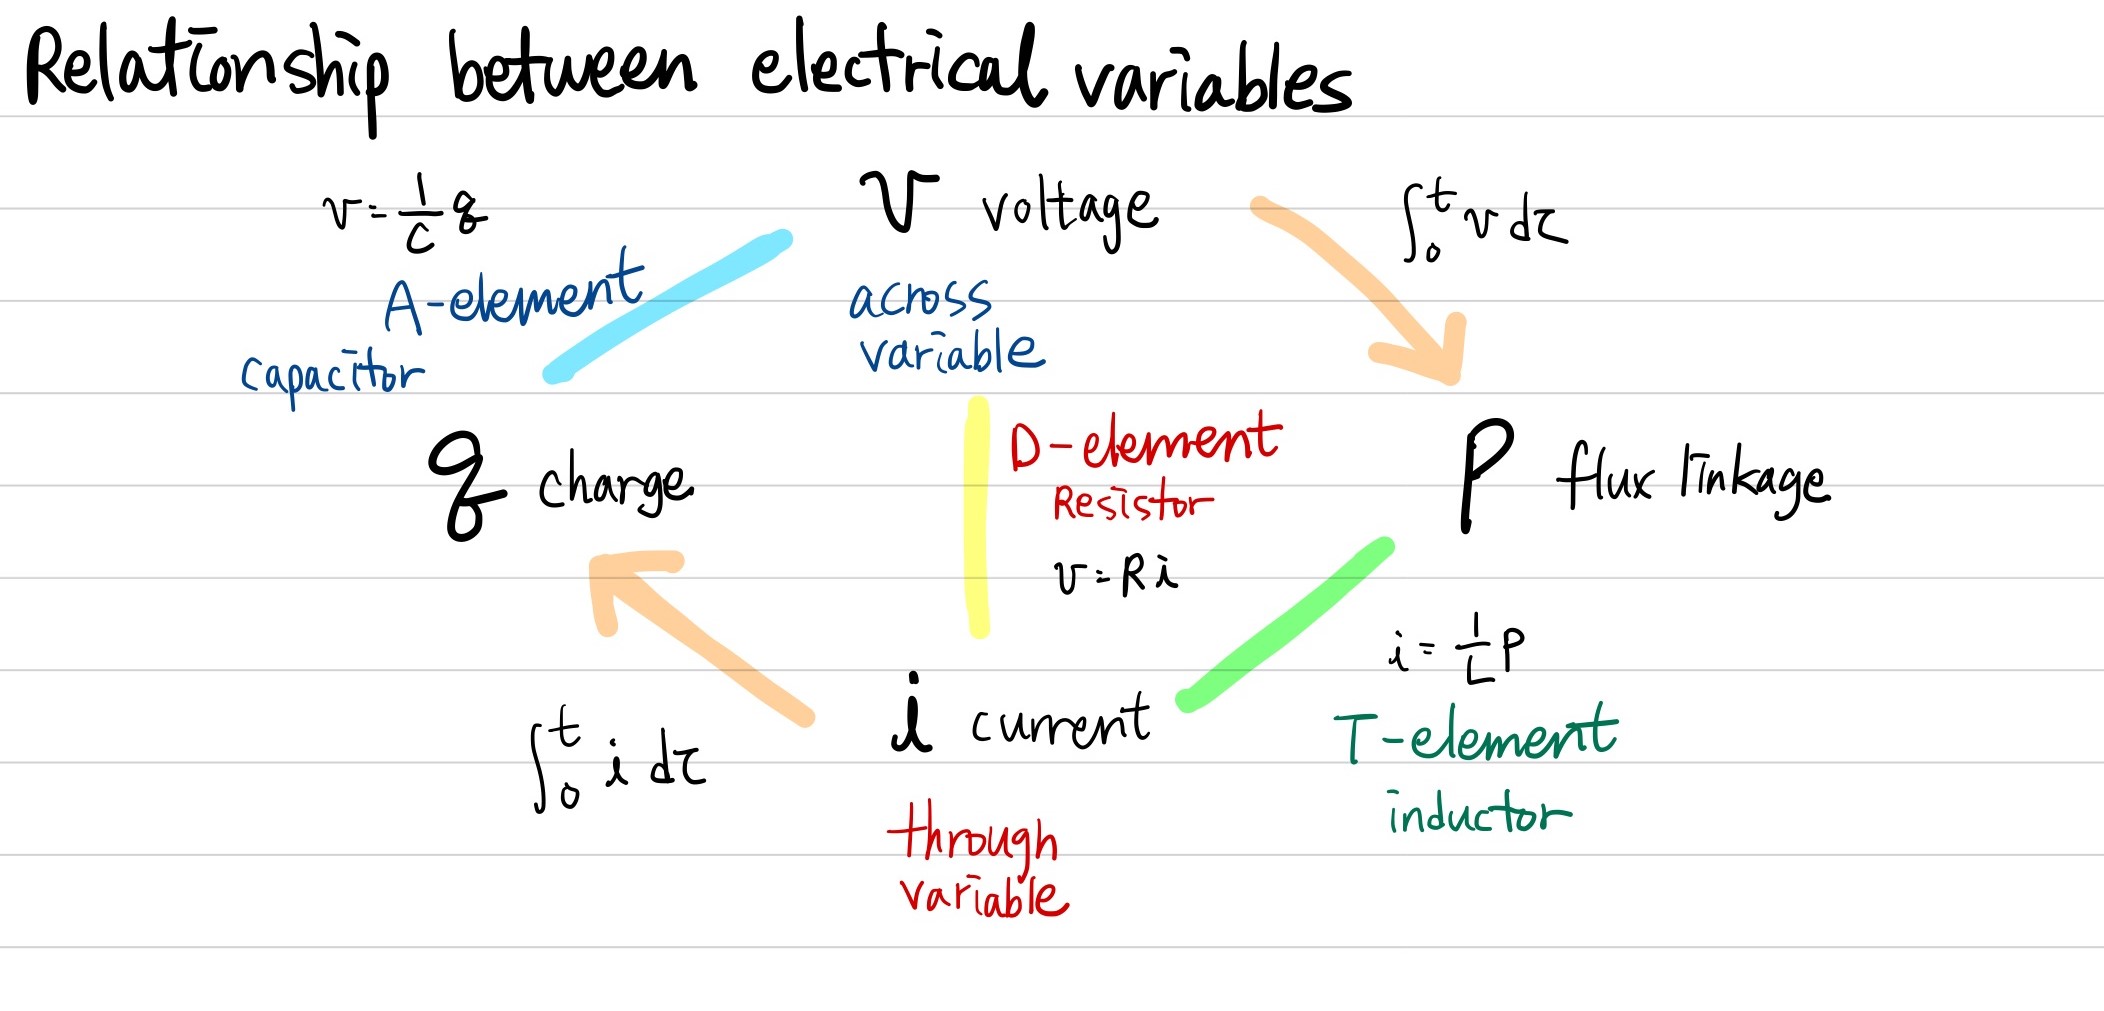 Relationship between electrical variables
v = 1/C q
v voltage
∫₀ᵗ v dτ
A-element
capacitor
across
variable
q charge
D-element
Resistor
v = R i
P flux linkage
i = 1/L P
∫₀ᵗ i dτ
i current
T-element
inductor
through
variable